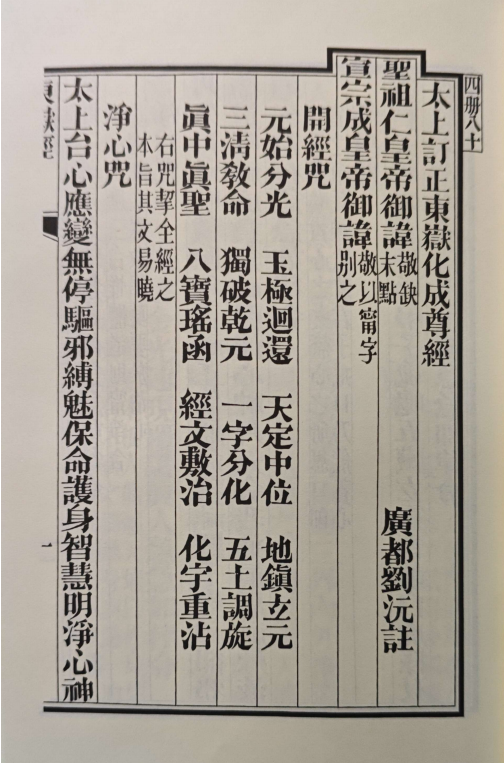 四册八十
太上訂正東嶽化成尊經
聖祖仁皇帝御諱敬缺末點　廣都劉沅註
宣宗成皇帝御諱敬以甯字別之
開經咒
元始分光　玉極迴還　天定中位　地鎭𤣥元
三清敎命　獨破乾元　一字分化　五土調旋
眞中眞聖　八寶瑤函　經文敷治　化宇重沾
右咒挈全經之
本旨其文易曉
淨心咒
太上台心應變無停驅邪縛魅保命護身智慧明淨心神
東嶽經
一